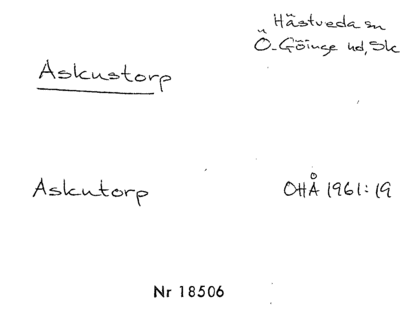 Hästveda sn
Ö-Göinge hd, Sk
Askustorp
Askutorp
OHÅ 1961:19
Nr 18506